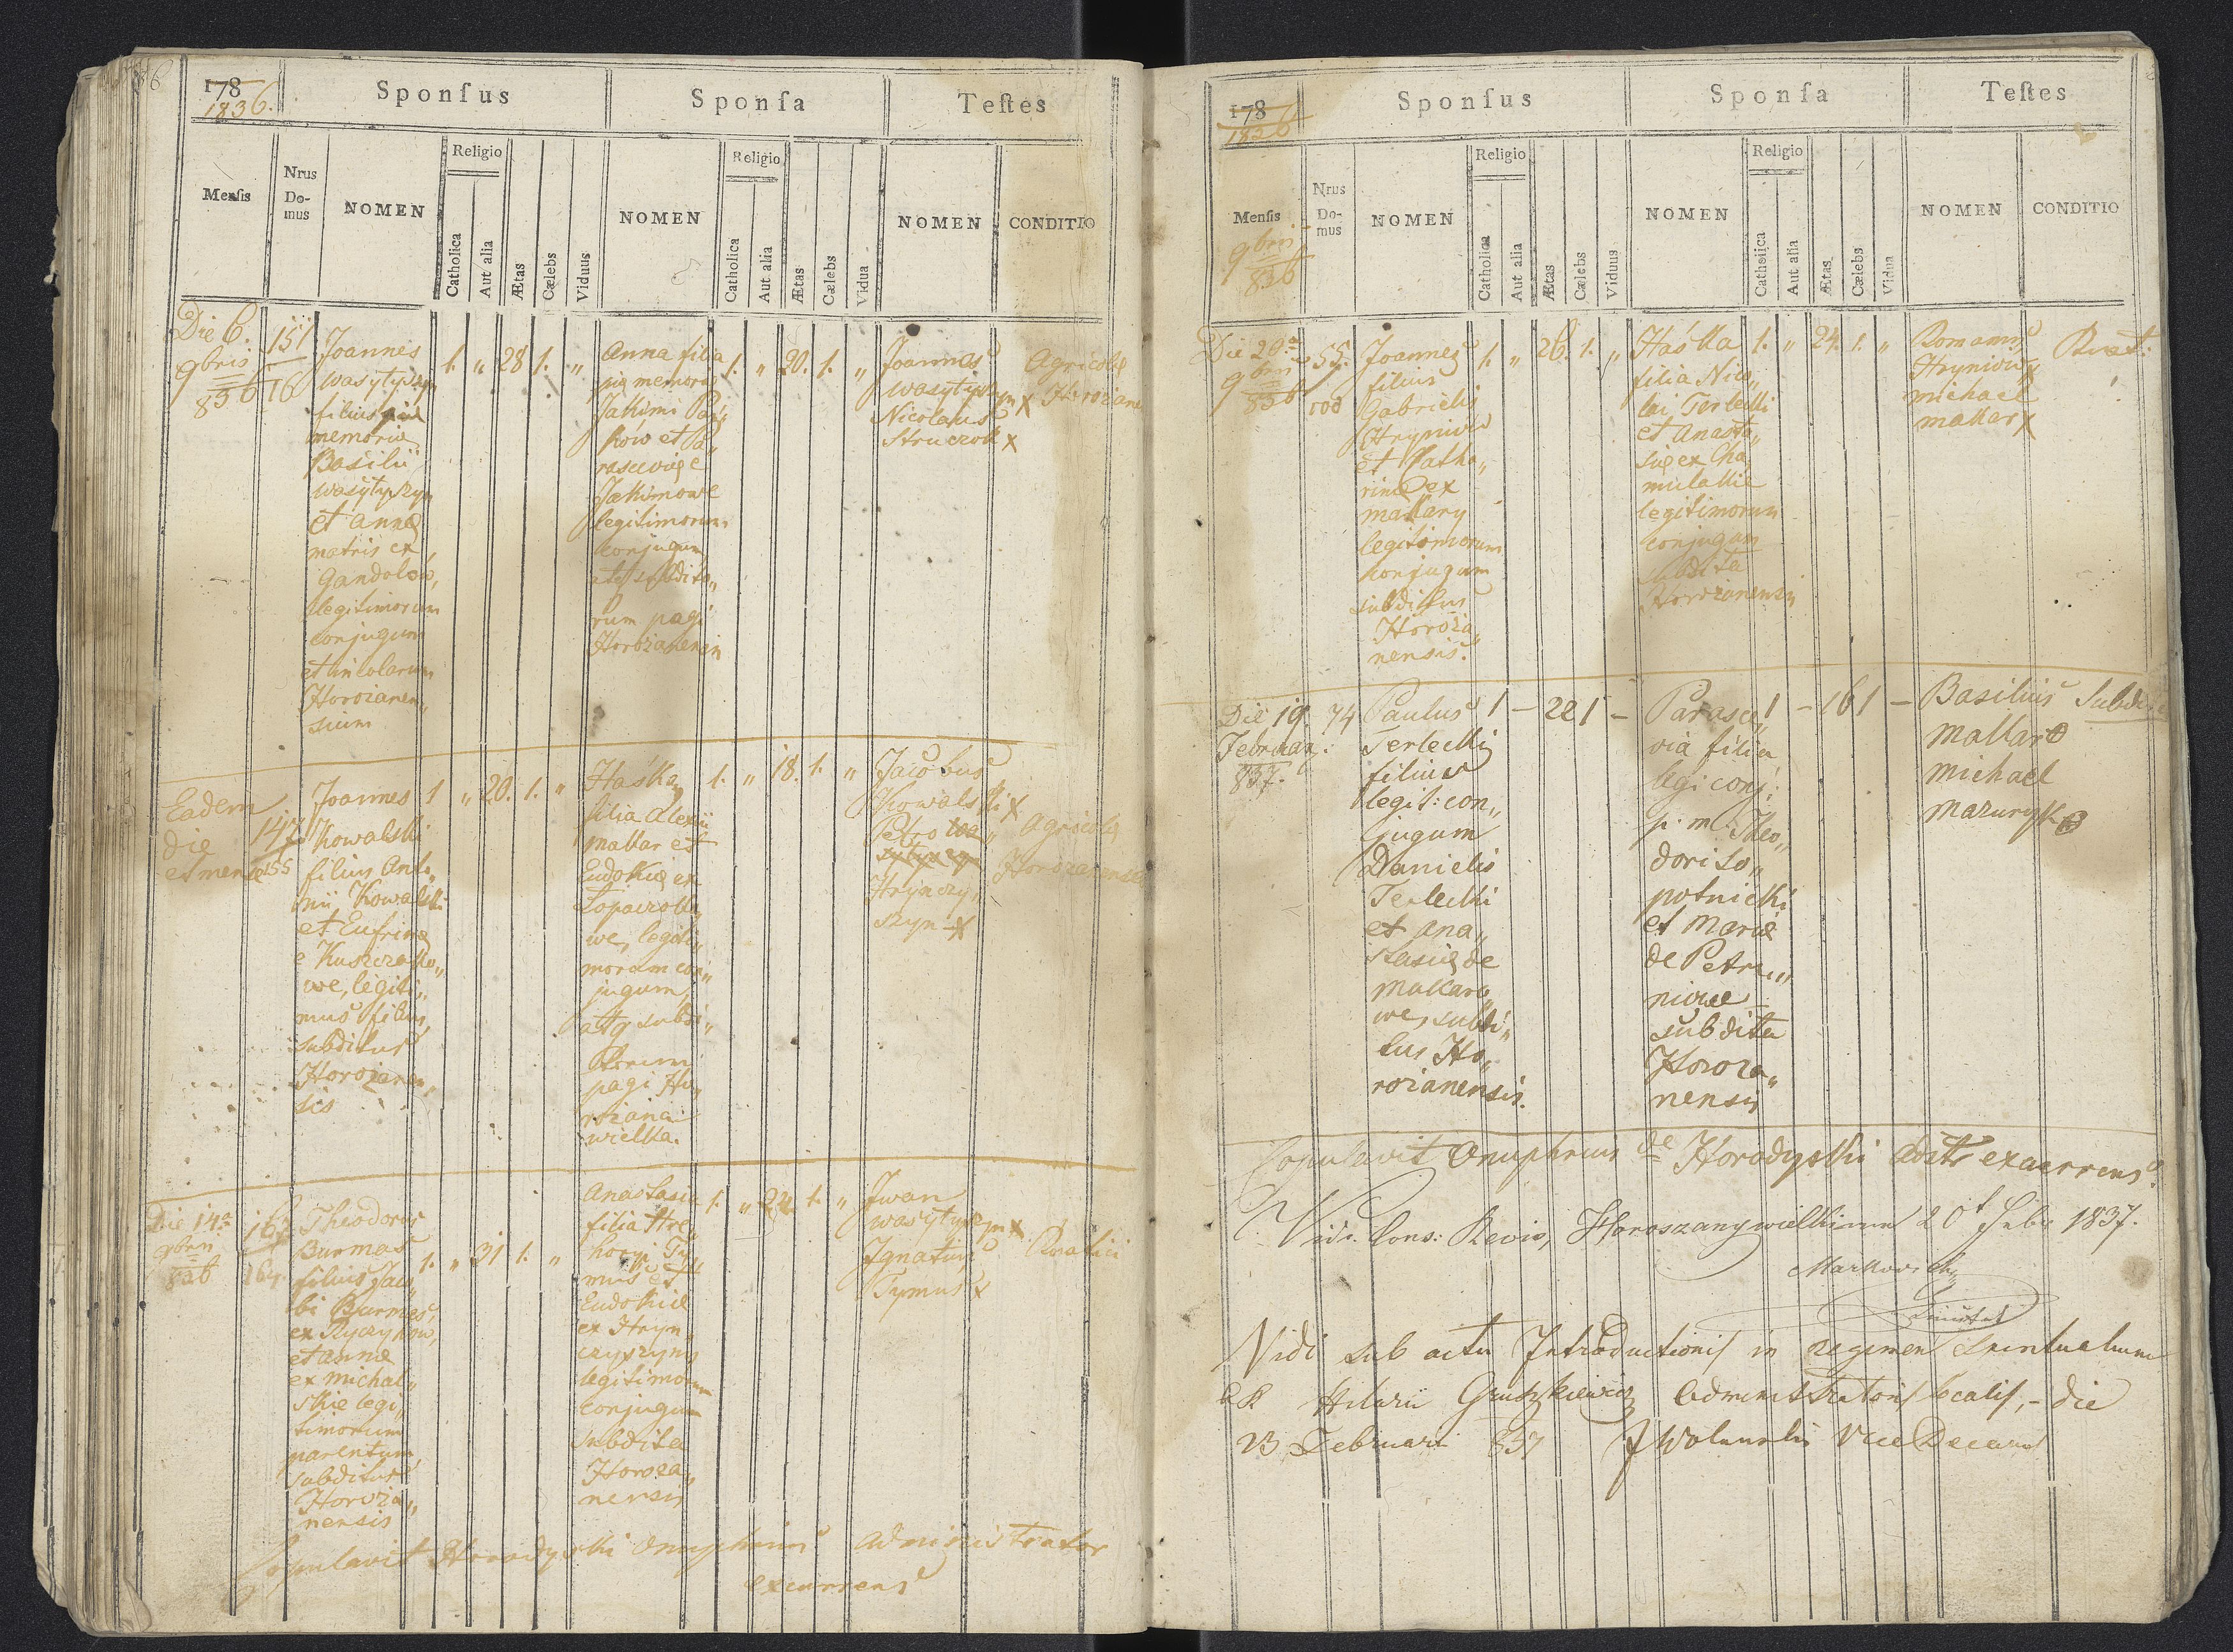 178
1836.
Sponſus
Sponſa
Teſtes
Menſis
Nrus
Do-
mus
NOMEN
Religio
Catholica
Aut alia
Ætas
Cælebs
Viduus
NOMEN
Religio
Catholica
Aut alia
Ætas
Cælebs
Vidua
NOMEN
CONDITIO
Die 6.
9bris
836
151
76
Joannes
Wasytyszyn
filius piæ
memoriæ
Basilii
Wasytyszyn
et Annæ
matris ex
Gandolow,
legitimorum
conjugum
et incolarum
Horożanen„
sium
1. „ 28 1. „
Anna filia
piæ memoriæ
Jakimi
ków et Pa„
rasceviæ
Jakimowe
legitimorum
conjugum
atq subdito„
rum pagi
Horożanensis
1. „ 20. 1. „
Joannes
Wasytyszyn x
Nicolaus
Struczok x
Agricolæ
Horożane
Eadem
die
et mense
147
155
Joannes
Kowalski
filius Anto„
nii Kowalski
et Eufrinæ
e Kuszczako„
we, legiti„
mus filius,
subditus
Horożanen„
sis
1 „ 20. 1. „
Haśka
filia Alexii
Makar et
Eudokiæ ex
Łopaczako„
we, legiti„
morum con„
jugum,
atq subdi„
torum
pagi Ho„
rożana
wielka.
1. „ 18. 1. „
Jacobus
Kowalski x
Petro Wa„
sytyszyn
Hrynczy„
szyn x
Agricolæ
Horożanenses
Die 14a
9bris
836
162
164.
Theodorus
Burmas
filius Jaco„
bi Burmas,
ex Ryczykow,
et Annæ
ex Michal„
skie legi„
timorum
parentum,
subditus
Horoża„
nensis
1. „ 31 1. „
Anastasia
filia Hre„
horyi Ty„
mus et
Eudokiæ
ex Hryn„
czyszyny
legitimorum
conjugum
subdita
Horoża„
nensis
1. „ 22. 1. „
Iwan
Wasytyszyn x
Ignatius
Tymus x
Rustici
Copulavit Horodyski Onuphrius Administrator
excurrens
178
1836
Sponſus
Sponſa
Teſtes
Menſis
9bris
836
Nrus
Do-
mus
NOMEN
Religio
Catholica
Aut alia
Ætas
Cælebs
Viduus
NOMEN
Religio
Catholica
Aut alia
Ætas
Cælebs
Vidua
NOMEN
CONDITIO
Die 20a
9bris
836
55.
Joannes
filius
Gabrielis
Hryniów
et Catha„
rinæ ex
Makary
legitimorum
conjugum
subditus
Horoża„
nensis.
1. „ 26. 1. „
Haśka
filia Nico„
lai Terlecki
et Anasta„
siæ ex Cha„
mulakie
legitimorum
conjugum
subdita
Horożanensis
1. „ 24. 1. „
Romanus
Hryniów x
Michael
Makar x
Rust.
Die 19.
Februar:
837.
74
Paulus
Terlecki
filius
legit: con„
jugum
Danielis
Terlecki
et Ana„
stasiæ de
Makaro„
we, subdi„
tus Ho„
rożanensis.
1 — 22 1 —
Parasce„
via filia
legi conj:
p. m. Theo„
dori So„
potnicki
et Mariæ
de Petru„
niwe
subdita
Horoza„
nensis
1 — 16 1 —
Basilius
Makar
Michael
Mazuryk
Subditi
Copulavit Onuphrius de Horodyski Admtr excurrens
Vidi Cons: Revis, Horoszany wielkie 20t Febr 1837.
Markow
Vidi sub actu Introductionis in regimen Spirituahum
AR Hilarii Gruszkiewicz Administratoris localis, – die
23 Februari 837 JWolanski ViceDecanus